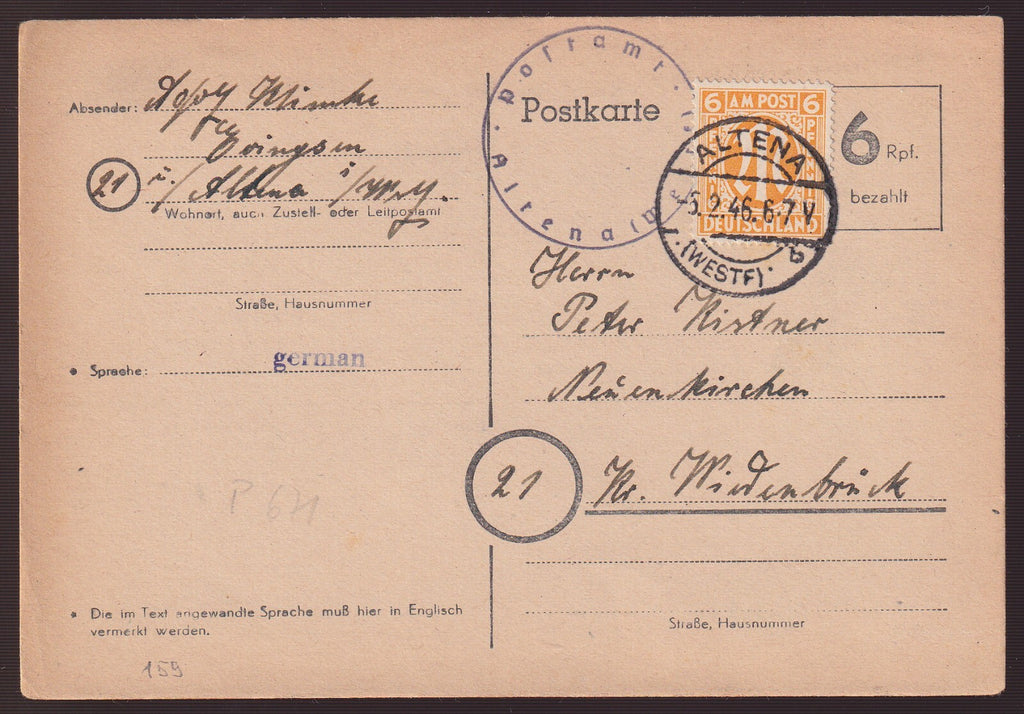 Absender: Adolf Klincke
Evingsen
21 ü./Altena i/W.
Wohnort, auch Zustell- oder Leitpostamt
Straße, Hausnummer
* Sprache: german
P 671
* Die im Text angewandte Sprache muß hier in Englisch
vermerkt werden.
159
Postamt
Altena (W
Postkarte
6 AM POST 6
DEUTSCHLAND
ALTENA
5.2.46.6-7V
(WESTF)
b
6 Rpf.
bezahlt
Herrn
Peter Kistner
Neuenkirchen
21 Kr. Wiedenbrück
Straße, Hausnummer